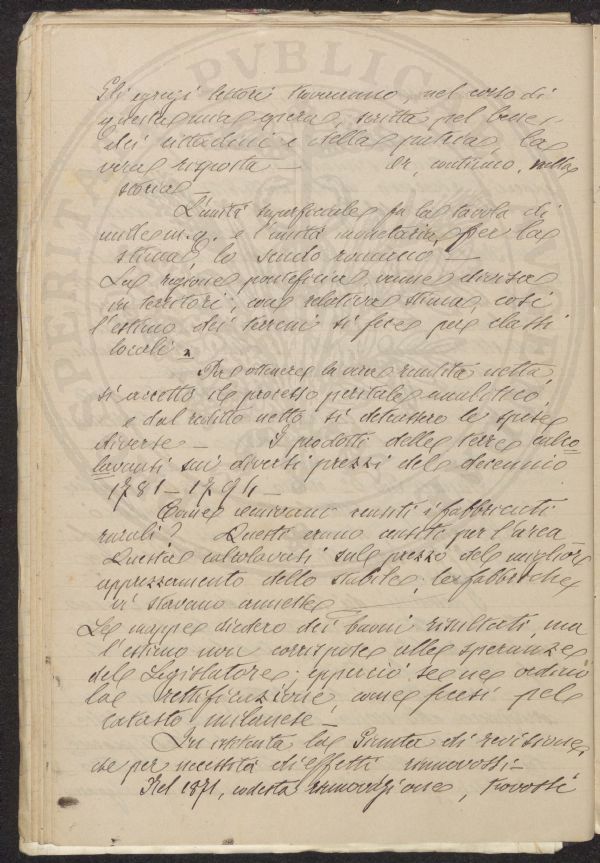 Gli egregi lettori troveranno, nel corso di
questa mia opera, scritta pel bene
dei cittadini e della patria, la
vera risposta — Or, continuo, nella
storia —
L'unità superficiale fu la tavola di
mille m. q. e l'unità monetaria, per la
stima, lo scudo romano. —
La regione pontificia venne divisa
in territori, con relativa stima, così
l'estimo dei terreni si fece per classi
locali.
Per ottenere la vera rendita netta,
si accettò il processo peritale analitico,
e dal reddito netto si detrassero le spese
diverse — I prodotti delle terre calco
lavansi sui diversi prezzi del decennio
1781 – 1794 —
Come venivano censiti i fabbricati
rurali? Questi erano censiti per l'area
Questa calcolavasi sul prezzo del migliore
apprezzamento dello stabile; le fabbriche
vi stavano annesse —
Le mappe diedero dei buoni risultati, ma
l'estimo non corrispose alle speranze
del Legislatore; epperciò se ne ordinò
la rettificazione, come fecesi pel
catasto milanese —
In la Giunta di revisione,
che per necessità di effetti rinnovossi —
Nel 1871, codesta rinnovazione, trovossi